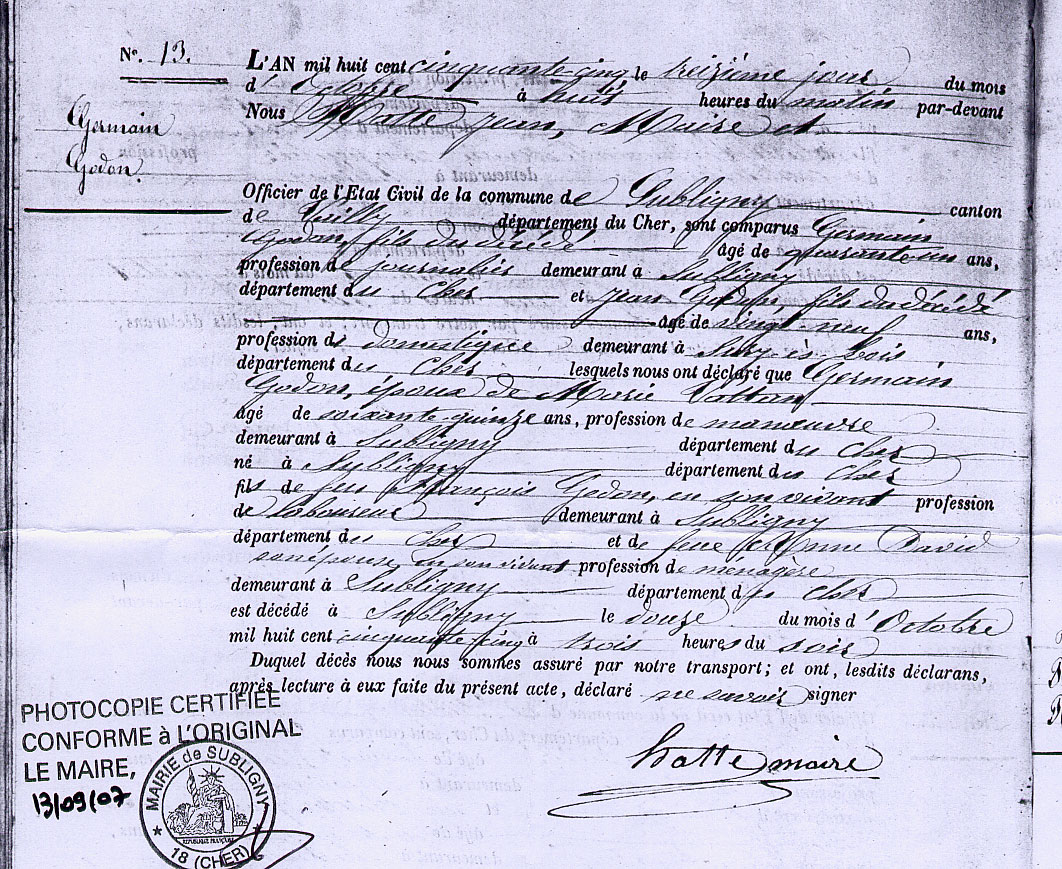 N° 13.
Germain
Godon.
L'AN mil huit cent cinquante-cinq le treizième jour du mois
d'Octobre à huit heures du matin par-devant
Nous Hatte Jean, Maire et
Officier de l'Etat Civil de la commune de Subligny canton
de Vailly département du Cher, sont comparus Germain
Godon, fils du décédé âgé de quarante un ans,
profession de journalier demeurant à Subligny
département du Cher et Jean Godon, fils du décédé
âgé de vingt-neuf ans,
profession de domestique demeurant à Sury-ès-bois,
département du Cher lesquels nous ont déclaré que Germain
Godon, époux de Marie
âgé de soixante-quinze ans, profession de manœuvre
demeurant à Subligny département du Cher
né à Subligny département du Cher
fils de feu François Godon, en son vivant profession
de laboureur demeurant à Subligny
département du Cher et de feue Anne David
son épouse, en son vivant profession de ménagère
demeurant à Subligny département du Cher
est décédé à Subligny le douze du mois d'Octobre
mil huit cent cinquante cinq à trois heures du soir
Duquel décès nous nous sommes assuré par notre transport; et ont, lesdits déclarans,
après lecture à eux faite du présent acte, déclaré ne savoir signer
hatte maire
PHOTOCOPIE CERTIFIÉE
CONFORME à L'ORIGINAL
LE MAIRE,
13/09/07
MAIRIE de SUBLIGNY
REPUBLIQUE FRANÇAISE
18 (CHER)